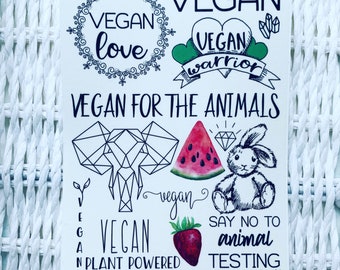 VEGAN
VEGAN
love
VEGAN
warrior
VEGAN FOR THE ANIMALS
vegan
VEGAN
VEGAN
PLANT POWERED
SAY NO TO
animal
TESTING